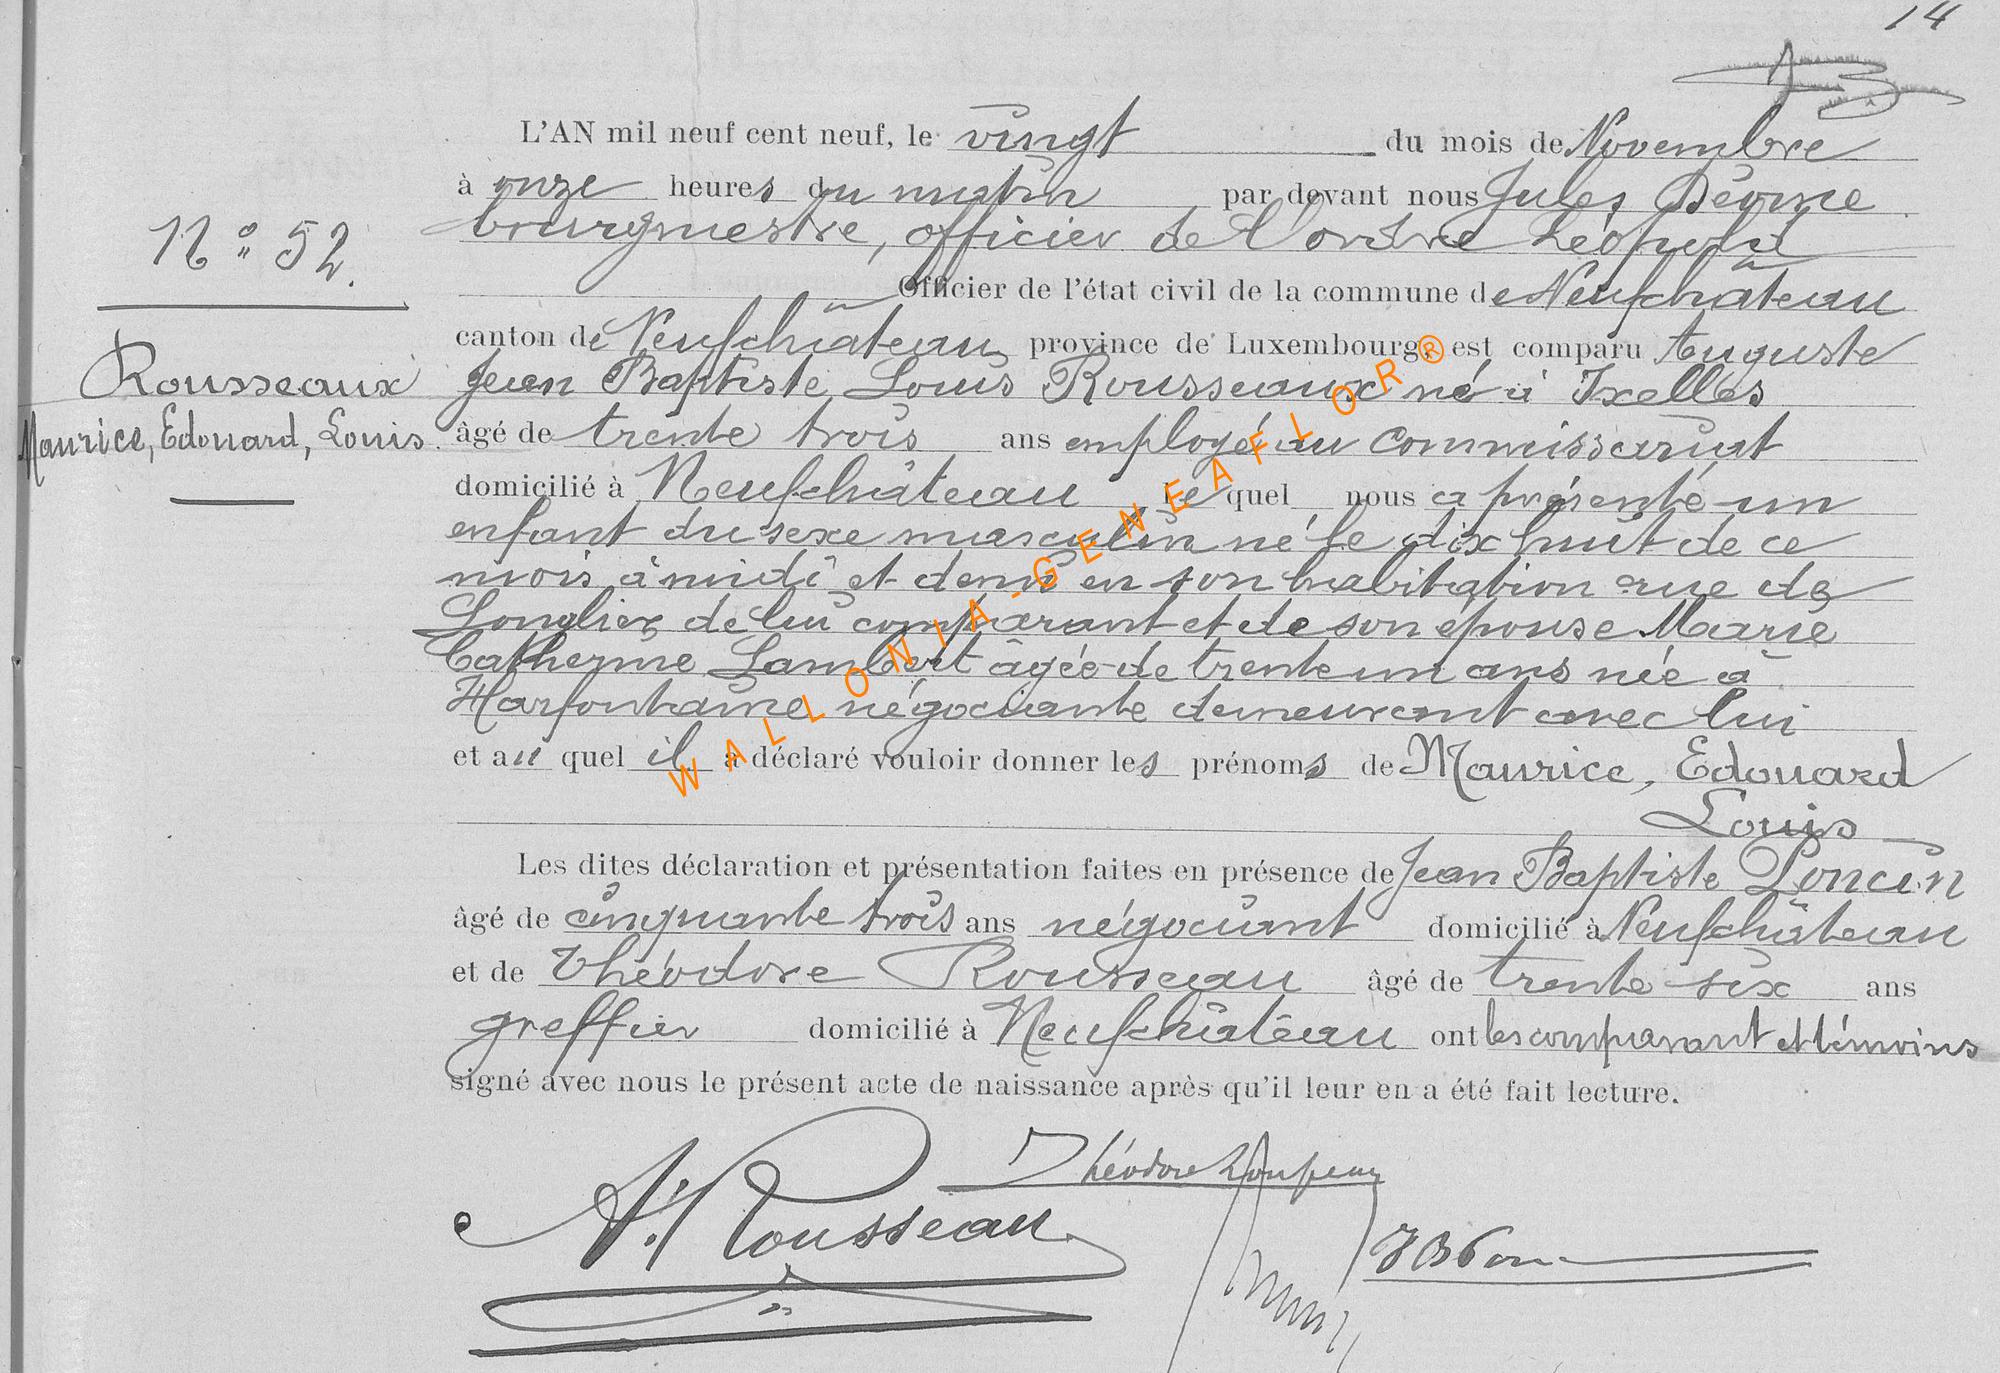 14
L'AN mil neuf cent neuf, le vingt du mois de Novembre
à onze heures du matin par devant nous Jules
bourgmestre, officier de l'ordre Léopold
N° 52.
Officier de l'état civil de la commune de Neufchâteau
canton de Neufchâteau province de Luxembourg, est comparu Auguste
Rousseaux
Jean Baptiste Louis Rousseaux né à Ixelles
Maurice, Edouard, Louis.
âgé de trente trois ans employé au commissariat
domicilié à Neufchâteau le quel nous a présenté un
enfant du sexe masculin né le dix huit de ce
mois à midi et demi en son habitation rue de
Longlier de lui comparant et de son épouse Marie
Catherine Lambert âgée de trente un ans née à
Harfontaine négociante demeurant avec lui
et au quel il a déclaré vouloir donner les prénoms de Maurice, Edouard
Louis
Les dites déclaration et présentation faites en présence de Jean Baptiste Poncin
âgé de cinquante trois ans négociant domicilié à Neufchâteau
et de Théodore Rousseau âgé de trente six ans
greffier domicilié à Neufchâteau ont les comparant et témoins
signé avec nous le présent acte de naissance après qu'il leur en a été fait lecture.
Théodore
A. Rousseau
WALLONIA-GENEAFLOR®